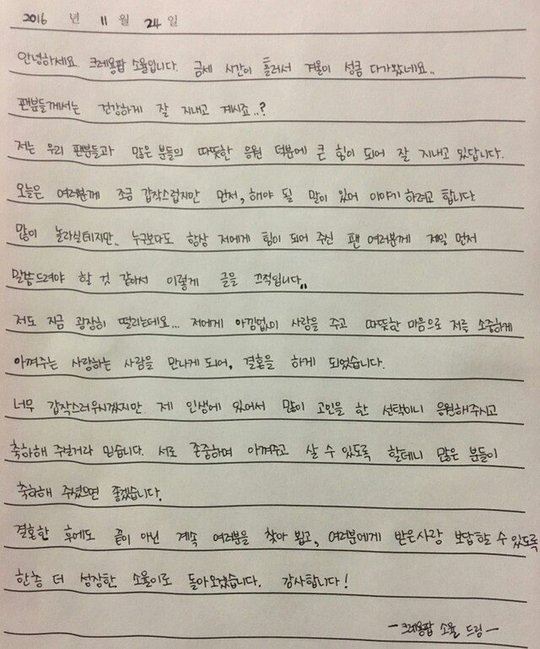 2016 년 11월 24일
안녕하세요 크레용팝 소율입니다. 금세 시간이 흘러서 겨울이 성큼 다가왔네요..
팬분들께서는 건강하게 잘 지내고 계시죠..?
저는 우리 팬분들과 많은 분들의 따뜻한 응원 덕분에 큰 힘이 되어 잘 지내고 있답니다.
오늘은 여러분께 조금 갑작스럽지만 먼저, 해야 될 말이 있어 이야기 하려고 합니다
많이 놀라실테지만.. 누구보다도 항상 저에게 힘이 되어 주신 팬 여러분께 제일 먼저
말씀드려야 할 것 같아서 이렇게 글을 끄적입니다..
저도 지금 굉장히 떨리는데요... 저에게 아낌없이 사랑을 주고 따뜻한 마음으로 저를 소중하게
아껴주는 사랑하는 사람을 만나게 되어, 결혼을 하게 되었습니다.
너무 갑작스러우시겠지만 제 인생에 있어서 많이 고민을 한 선택이니 응원해주시고
축하해 주실거라 믿습니다. 서로 존중하며 아껴주고 살 수 있도록 할테니 많은 분들이
축하해 주셨으면 좋겠습니다.
결혼한 후에도 끝이 아닌 계속 여러분을 찾아 뵙고, 여러분에게 받은사랑 보답할 수 있도록
한층 더 성장한 소율이로 돌아오겠습니다. 감사합니다!
- 크레용팝 소율 드림 -